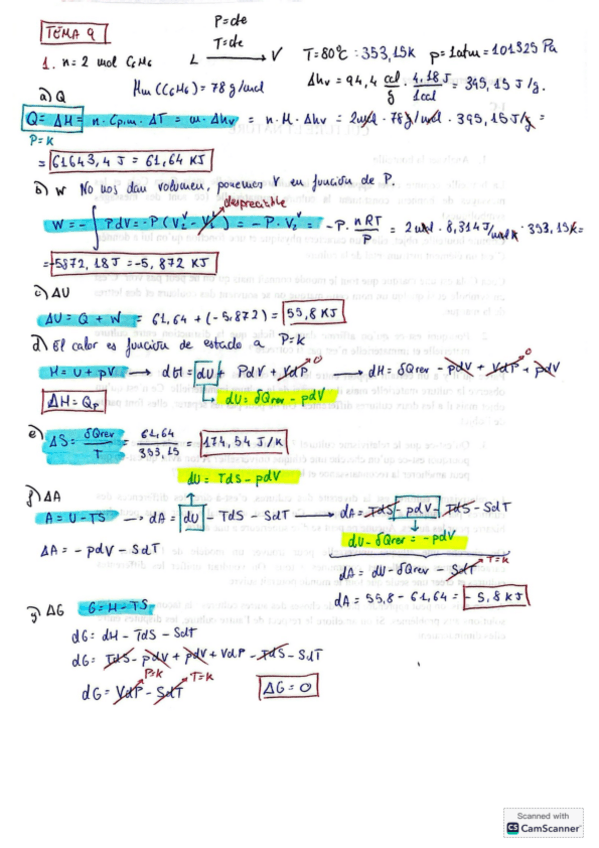 TEMA 9
P=cte
T=cte
1. n=2 mol C6H6 L → V T=80ºC : 353,15K p=1atm=101325 Pa
Mm(C6H6)=78g/mol Δhv = 94,4 cal/g · 4,18J/1cal = 395,15 J/g.
a) Q
Q= ΔH= n·Cp,m·ΔT = m·Δhv = n·M·Δhv = 2mol·78g/mol·395,15J/g =
P=K
= 61643,4 J = 61,64 KJ
b) W No nos dan volumen, ponemos V en función de P.
despreciable
W=-∫PdV=-P(V2^V-V1^L)=-P·V2^V= -P·nRT/P = 2mol·8,314J/molK·353,15K=
=-5872,18J=-5,872 KJ
c) ΔU
ΔU= Q+W = 61,64+(-5,872)= 55,8 KJ
d) El calor es función de estado a P=K
H=U+pV → dH=dU+PdV+VdP 0 → dH=δQrev-pdV+VdP 0+pdV
ΔH=Qp dU=δQrev-pdV
e) ΔS= δQrev/T = 61,64/353,15 = 174,54 J/K
dU=TdS-pdV
f) ΔA
A=U-TS → dA=dU-TdS-SdT → dA=TdS-pdV-TdS-SdT
dU-δQrev=-pdV
ΔA=-pdV-SdT
dA=dU-δQrev-SdT T=K
dA=55,8-61,64=-5,8KJ
g) ΔG G=H-TS
dG=dH-TdS-SdT
dG=TdS-pdV+pdV+VdP-TdS-SdT
P=K T=K
dG=VdP-SdT ΔG=0
Scanned with
CS CamScanner